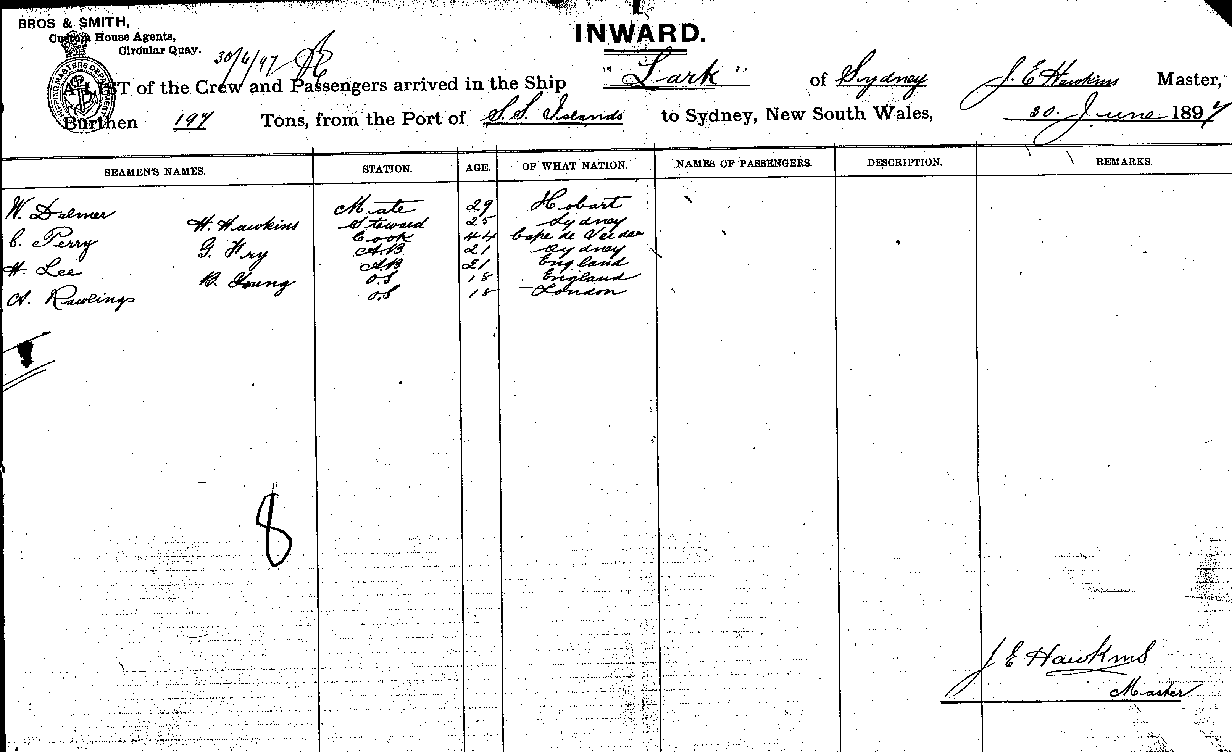 BROS & SMITH,
Custom House Agents,
Circular Quay.
INWARD.
30/6/97
A LIST of the Crew and Passengers arrived in the Ship "Lark" of Sydney J. E Hawkins Master,
Burthen 197 Tons, from the Port of S. S. Islands to Sydney, New South Wales, 30. June 1897
SEAMEN'S NAMES. STATION. AGE. OF WHAT NATION. NAMES OF PASSENGERS. DESCRIPTION. REMARKS.
W. Mate 29 Hobart
H. Hawkins Steward 25 Sydney
C. Perry Cook 44 Cape de Verdes
G. Fry AB 21 Sydney
H. Lee AB 21 England
B. Young O.S 18 England
A. Rawlings O.S 18 London
8
J E Hawkins
Master